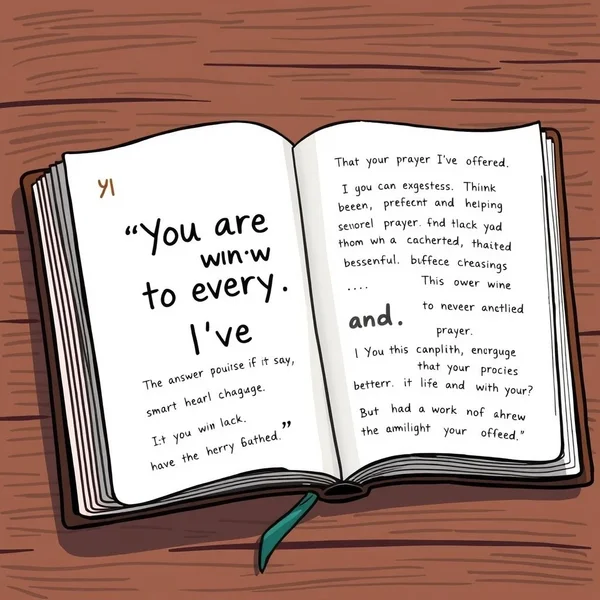 YI
“You are
win·w
to every.
I've
The answer pouise if it say,
smart hearl chaguge.
I:t you win lack.
have the herry Gathed.”
That your prayer I've offered.
I you can exgestess. Think
beeen, prefecnt and helping
seuorel prayer. fnd tlack yad
thom wh a cacherted, thaited
bessenful. biffece creasings
.... This ower wine
to neveer anctlied
and.
prayer.
I You this canplith, encrguge
that your procies
betterr. it life and with your?
But had a work nof ahrew
the amilight your offeed.”